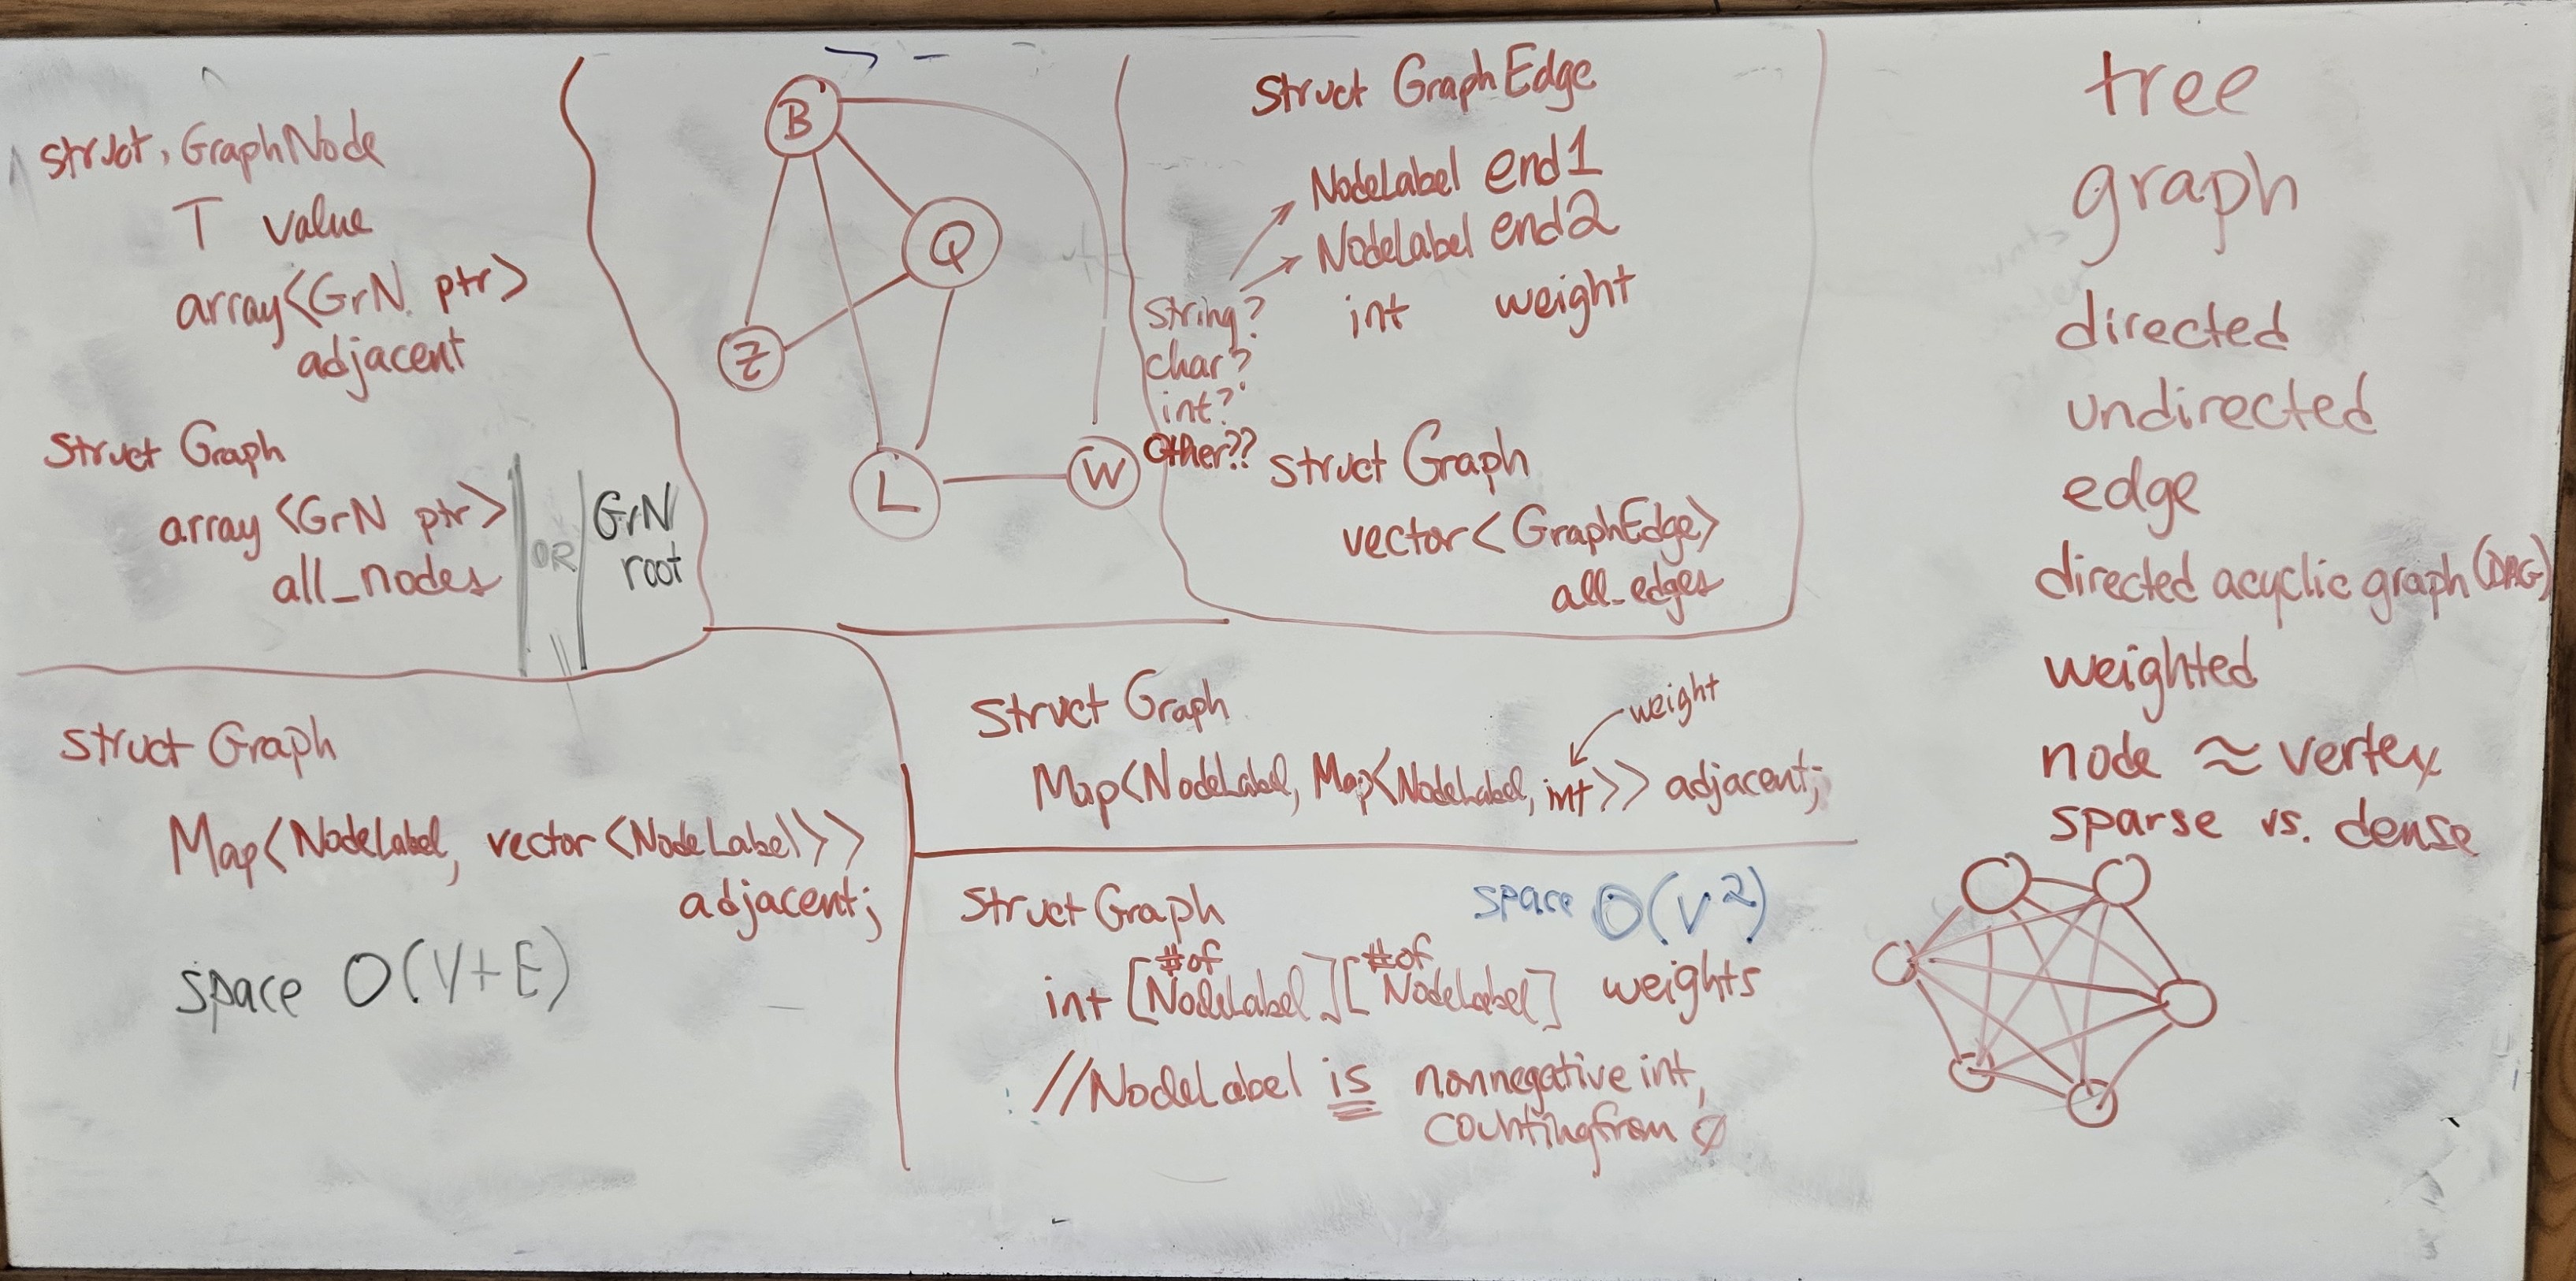 struct GraphNode
T value
array<GrN ptr>
adjacent
struct Graph
array<GrN ptr>
all_nodes
OR
GrN
root
B
Q
Z
L
W
struct GraphEdge
NodeLabel end1
NodeLabel end2
int weight
string?
char?
int?
Other??
struct Graph
vector<GraphEdge>
all_edges
struct Graph
Map<NodeLabel, vector<NodeLabel>>
adjacent;
space O(V+E)
struct Graph
weight
Map<NodeLabel, Map<NodeLabel, int>> adjacent;
struct Graph
space O(V²)
#of #of
int [NodeLabel][NodeLabel] weights
//NodeLabel is nonnegative int,
counting from 0
tree
graph
directed
undirected
edge
directed acyclic graph (DAG)
weighted
node ≈ vertex
sparse vs. dense